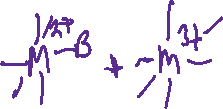 M-B + M3+